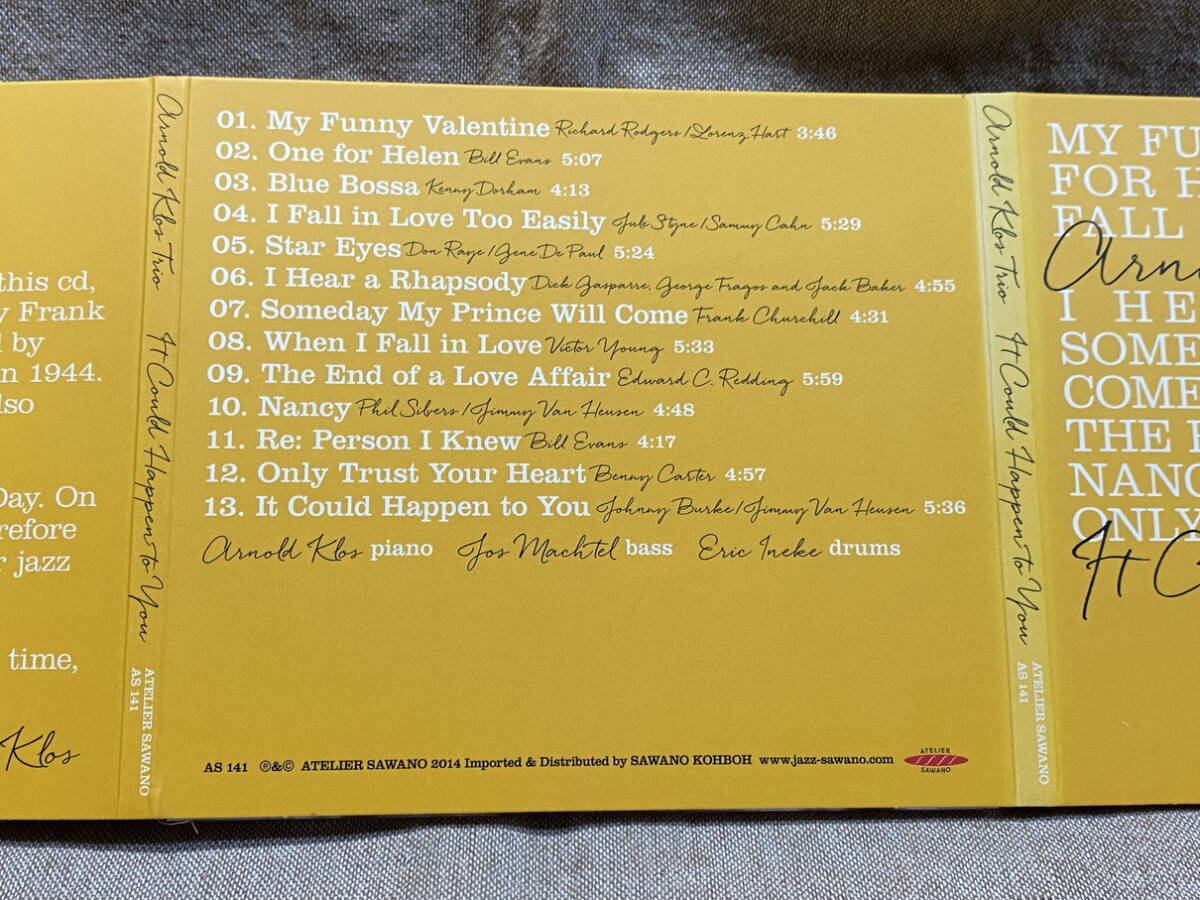 this cd,
y Frank
by
n 1944.
lso
Day. On
refore
r jazz
time,
Klos
Arnold Klos Trio It Could Happen to You ATELIER SAWANO AS 141
01. My Funny Valentine Richard Rodgers/Lorenz Hart 3:46
02. One for Helen Bill Evans 5:07
03. Blue Bossa Kenny Dorham 4:13
04. I Fall in Love Too Easily Jule Styne/Sammy Cahn 5:29
05. Star Eyes Don Raye/Gene De Paul 5:24
06. I Hear a Rhapsody Dick Gasparre, George Fragos and Jack Baker 4:55
07. Someday My Prince Will Come Frank Churchill 4:31
08. When I Fall in Love Victor Young 5:33
09. The End of a Love Affair Edward C. Redding 5:59
10. Nancy Phil Silvers/Jimmy Van Heusen 4:48
11. Re: Person I Knew Bill Evans 4:17
12. Only Trust Your Heart Benny Carter 4:57
13. It Could Happen to You Johnny Burke/Jimmy Van Heusen 5:36
Arnold Klos piano Jos Machtel bass Eric Ineke drums
AS 141 ℗&© ATELIER SAWANO 2014 Imported & Distributed by SAWANO KOHBOH www.jazz-sawano.com
ATELIER
SAWANO
Arnold Klos Trio It Could Happen to You ATELIER SAWANO AS 141
MY FU
FOR H
FALL
Arno
I HE
SOME
COME
THE E
NANC
ONLY
It C